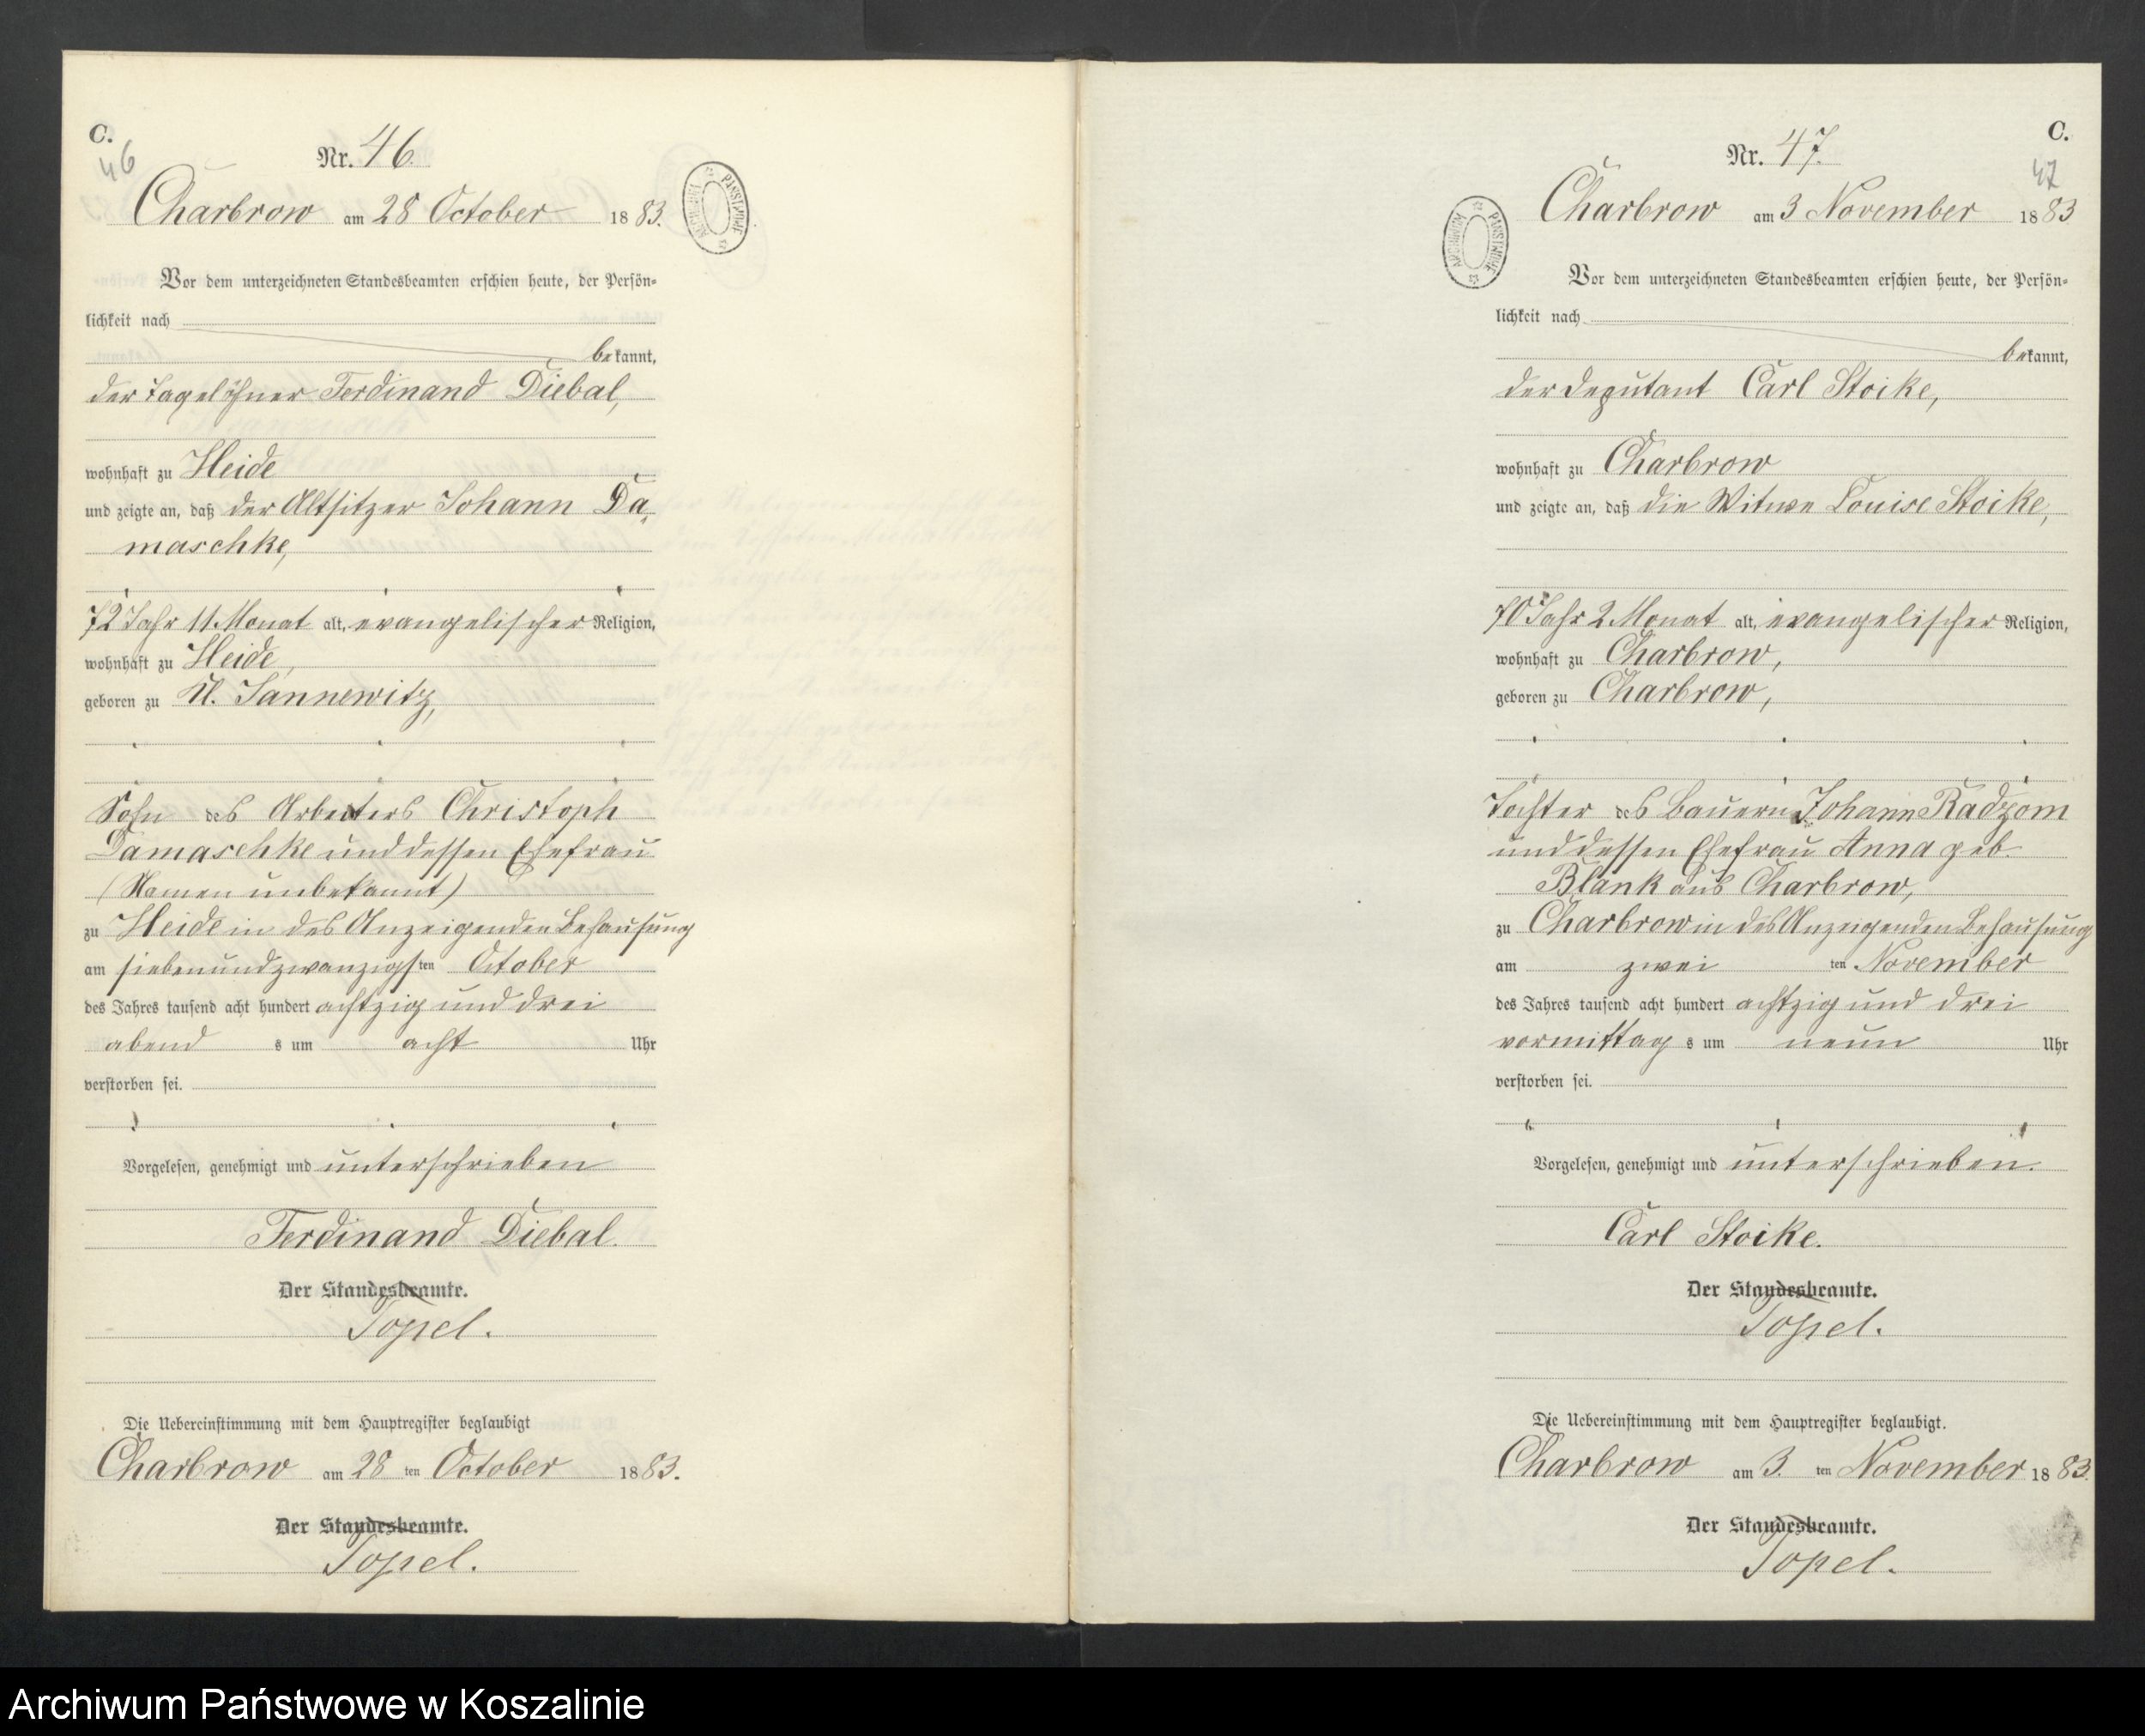 C.
46
Nr. 46.
Charbrow am 28 October 1883.
ARCHIWUM PAŃSTWOWE
Vor dem unterzeichneten Standesbeamten erschien heute, der Persön-
lichkeit nach
bekannt,
der Tagelöhner Ferdinand Diebal,
wohnhaft zu Heide
und zeigte an, daß der Altsitzer Johann Da-
maschke,
72 Jahr 11 Monat alt, evangelischer Religion,
wohnhaft zu Heide,
geboren zu N. Jannewitz,
Sohn des Arbeiters Christoph
Damaschke und dessen Ehefrau
(Namen unbekannt)
zu Heide in des Anzeigenden Behausung
am siebenundzwanzigsten October
des Jahres tausend acht hundert achtzig und drei
abends um acht Uhr
verstorben sei.
Vorgelesen, genehmigt und unterschrieben
Ferdinand Diebal.
Der Standesbeamte.
Topel.
Die Uebereinstimmung mit dem Hauptregister beglaubigt
Charbrow am 28 ten October 1883.
Der Standesbeamte.
Topel.
C.
47
Nr. 47.
Charbrow am 3 November 1883
ARCHIWUM PAŃSTWOWE
Vor dem unterzeichneten Standesbeamten erschien heute, der Persön-
lichkeit nach
bekannt,
der Deputant Carl Stoike,
wohnhaft zu Charbrow
und zeigte an, daß die Witwe Louise Stoike,
70 Jahr 2 Monat alt, evangelischer Religion,
wohnhaft zu Charbrow,
geboren zu Charbrow,
Tochter des Bauern Johann Radzom
und dessen Ehefrau Anna geb.
Blank aus Charbrow,
zu Charbrow in des Anzeigenden Behausung
am zwei ten November
des Jahres tausend acht hundert achtzig und drei
vormittags um neun Uhr
verstorben sei.
Vorgelesen, genehmigt und unterschrieben.
Carl Stoike.
Der Standesbeamte.
Topel.
Die Uebereinstimmung mit dem Hauptregister beglaubigt.
Charbrow am 3. ten November 1883.
Der Standesbeamte.
Topel.
Archiwum Państwowe w Koszalinie